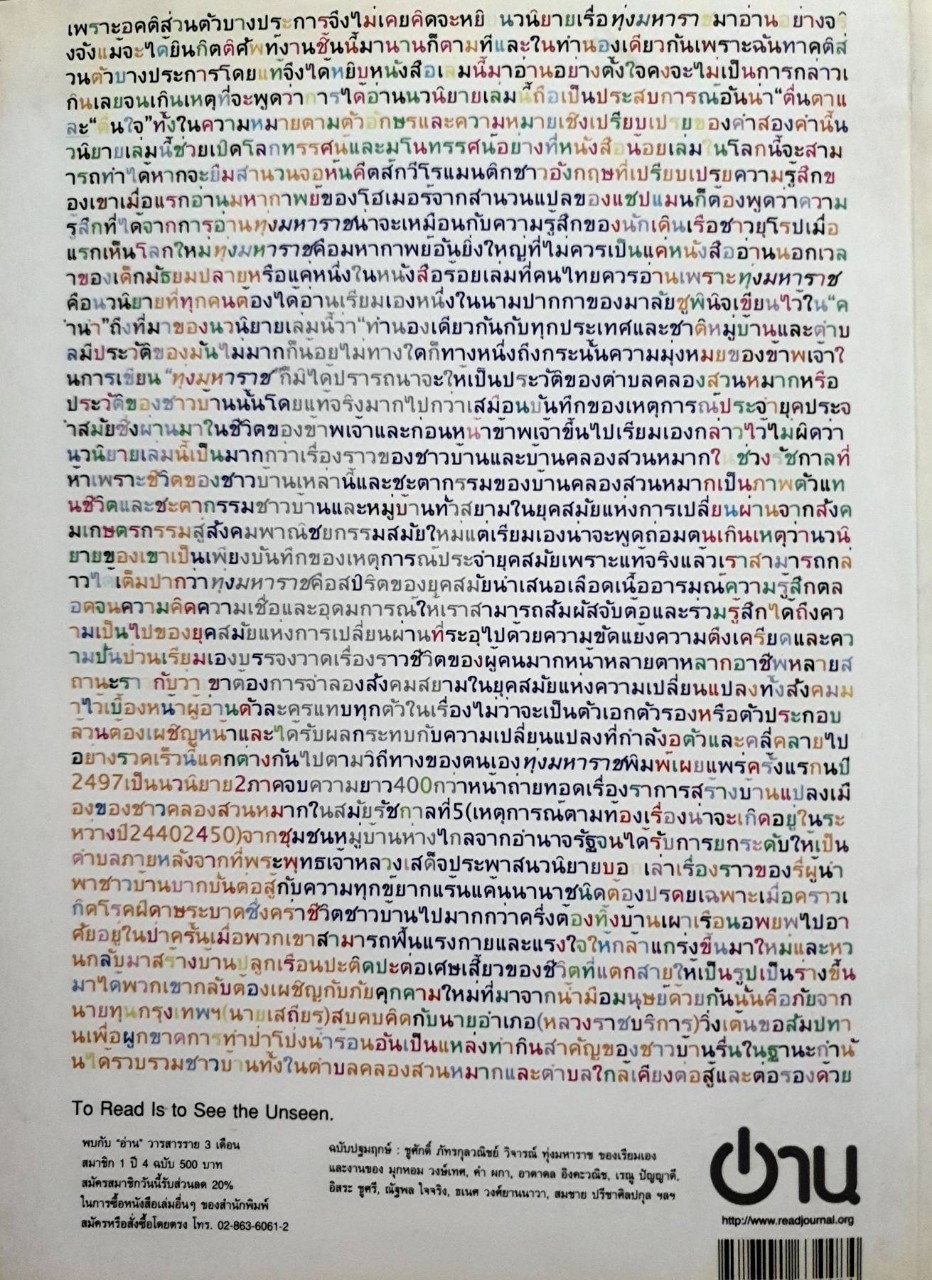 เพราะอคติส่วนตัวบางประการจึงไม่เคยคิดจะหยิ นวนิยายเรื่องทุ่งมหารา มาอ่าน ย่างจริ
งจังแม้จะได้ยินกิตติศัพท์งานชิ้นนี้มานานก็ตามทีและในทำนองเดียวกันเพราะฉันทาคติส่
วนตัวบางประการโดยแท้จึงได้หยิบหนังสือเล่มนี้มาอ่านอย่างตั้งใจคงจะไม่เป็นการกล่าวเ
กินเลยจนเกินเหตุที่จะพูดว่าการได้อ่านนวนิยายเล่มนี้ถือเป็นประสบการณ์อันน่า“ตื่นตาแ
ละ“ตื่นใจ”ทั้งในความหมายตามตัวอักษรและความหมายเชิงเปรียบเปรยของคำสองคำนี้น
วนิยายเล่มนี้ช่วยเปิดโลกทรรศน์และมโนทรรศน์อย่างที่หนังสือน้อยเล่มในโลกนี้จะสาม
ารถทำได้หากจะยืมสำนวนจอห์นคีตส์กวีโรแมนติกชาวอังกฤษที่เปรียบเปรยความรู้สึกข
องเขาเมื่อแรกอ่านมหากาพย์ของโฮเมอร์จากสำนวนแปลของแชปแมนก็ต้องพูดว่าความ
รู้สึกที่ได้จากการอ่านทุ่งมหาราชน่าจะเหมือนกับความรู้สึกของนักเดินเรือชาวยุโรปเมื่อ
แรกเห็นโลกใหม่ทุ่งมหาราชคือมหากาพย์อันยิ่งใหญ่ที่ไม่ควรเป็นแค่หนังสืออ่านนอกเวล
าของเด็กมัธยมปลายหรือแค่หนึ่งในหนังสือร้อยเล่มที่คนไทยควรอ่านเพราะทุ่งมหาราช
คือนวนิยายที่ทุกคนต้องได้อ่านเรียมเองหนึ่งในนามปากกาของมาลัยชูพินิจเขียนไว้ใน“ค
ำนำ”ถึงที่มาของนวนิยายเล่มนี้ว่า“ทำนองเดียวกันกับทุกประเทศและชาติหมู่บ้านและตำบ
ลมีประวัติของมันไม่มากก็น้อยไม่ทางใดก็ทางหนึ่งถึงกระนั้นความมุ่งหมยของข้าพเจ้าใ
นการเขียน“ทุ่งมหาราช”ก็มิได้ปรารถนาจะให้เป็นประวัติของตำบลคลองสวนหมากหรือ
ประวัติของชาวบ้านนั้นโดยแท้จริงมากไปกว่าเสมือนบันทึกของเหตุการณ์ประจำยุคประจ
ำสมัยซึ่งผ่านมาในชีวิตของข้าพเจ้าและก่อนหน้าข้าพเจ้าขึ้นไปเรียมเองกล่าวไว้ไม่ผิดว่า
นวนิยายเล่มนี้เป็นมากกว่าเรื่องราวของชาวบ้านและบ้านคลองสวนหมากใ ช่วงรัชกาลที่
ห้าเพราะชีวิตของชาวบ้านเหล่านี้และชะตากรรมของบ้านคลองสวนหมากเป็นภาพตัวแท
นชีวิตและชะตากรรมชาวบ้านและหมู่บ้านทั่วสยามในยุคสมัยแห่งการเปลี่ยนผ่านจากสังค
มเกษตรกรรมสู่สังคมพาณิชยกรรมสมัยใหม่แต่เรียมเองน่าจะพูดถ่อมตนเกินเหตุว่านวนิ
ยายของเขาเป็นเพียงบันทึกของเหตุการณ์ประจำยุคสมัยเพราะแท้จริงแล้วเราสามารถกล่
าวได้เต็มปากว่าทุ่งมหาราชคือสปิริตของยุคสมัยนำเสนอเลือดเนื้ออารมณ์ความรู้สึกตล
อดจนความคิดความเชื่อและอุดมการณ์ให้เราสามารถสัมผัสจับต้อและร่วมรู้สึกได้ถึงคว
ามเป็นไปของยุคสมัยแห่งการเปลี่ยนผ่านที่ระอุไปด้วยความขัดแย้งความตึงเครียดและคว
ามปั่นป่วนเรียมเองบรรจงวาดเรื่องราวชีวิตของผู้คนมากหน้าหลายตาหลากอาชีพหลายส
ถานะรา กับว่า ขาต้องการจำลองสังคมสยามในยุคสมัยแห่งความเปลี่ยนแปลงทั้งสังคมม
าไว้เบื้องหน้าผู้อ่านตัวละครแทบทุกตัวในเรื่องไม่ว่าจะเป็นตัวเอกตัวรองหรือตัวประกอบ
ล้วนต้องเผชิญหน้าและได้รับผลกระทบกับความเปลี่ยนแปลงที่กำลังอตัวและคลี่คลายไป
อย่างรวดเร็วนี้แตกต่างกันไปตามวิถีทางของตนเองทุ่งมหาราชพิมพ์เผยแพร่ครั้งแรกนปี
2497เป็นนวนิยาย2ภาคจบความยาว400กว่าหน้าถ่ายทอดเรื่องราการสร้างบ้านแปลงเมื
องของชาวคลองสวนหมากในสมัยรัชกาลที่5(เหตุการณ์ตามท้องเรื่องน่าจะเกิดอยู่ในระ
หว่างปี24402450)จากชุมชนหมู่บ้านห่างไกลจากอำนาจรัฐจนได้รับการยกระดับให้เป็น
ตำบลภายหลังจากที่พระพุทธเจ้าหลวงเสด็จประพาสนวนิยายบอ เล่าเรื่องราวของรื่ผู้นำ
พาชาวบ้านบากบั่นต่อสู้กับความทุกข์ยากแร้นแค้นนานาชนิดต้องปรดยเฉพาะเมื่อคราวเ
กิดโรคฝีดาษระบาดซึ่งคร่าชีวิตชาวบ้านไปมากกว่าครึ่งต้องทิ้งบ้านเผาเรือนอพยพไปอา
ศัยอยู่ในป่าครั้นเมื่อพวกเขาสามารถฟื้นแรงกายและแรงใจให้กล้าแกร่งขึ้นมาใหม่และหว
นกลับมาสร้างบ้านปลูกเรือนปะติดปะต่อเศษเสี้ยวของชีวิตที่แตกสายให้เป็นรูปเป็นร่างขึ้น
มาได้พวกเขากลับต้องเผชิญกับภัยคุกคามใหม่ที่มาจากน้ำมือมนุษย์ด้วยกันนั่นคือภัยจาก
นายทุนกรุงเทพฯ(นายเสถียร)สบคบคิดกับนายอำเภอ(หลวงราชบริการ)วิ่งเต้นขอสัมปทา
นเพื่อผูกขาดการทำป่าโป่งน้ำร้อนอันเป็นแหล่งทำกินสำคัญของชาวบ้านรื่นในฐานะกำนั
นได้รวบรวมชาวบ้านทั้งในตำบลคลองสวนหมากและตำบลใกล้เคียงต่อสู้และต่อรองด้วย
To Read Is to See the Unseen.
พบกับ "อ่าน" วารสารราย 3 เดือน
สมาชิก 1 ปี 4 ฉบับ 500 บาท
สมัครสมาชิกวันนี้รับส่วนลด 20%
ในการซื้อหนังสือเล่มอื่นๆ ของสำนักพิมพ์
สมัครหรือสั่งซื้อโดยตรง โทร. 02-863-6061-2
ฉบับปฐมฤกษ์ : ชูศักดิ์ ภัทรกุลวณิชย์ วิจารณ์ ทุ่งมหาราช ของเรียมเอง
และงานของ มุกหอม วงษ์เทศ, คำ ผกา, อาดาดล อิงคะวณิช, เรณู ปัญญาดี,
อิสระ ชูศรี, ณัฐพล ใจจริง, ธเนศ วงศ์ยานนาวา, สมชาย ปรีชาศิลปกุล ฯลฯ
อ่าน
http://www.readjournal.org